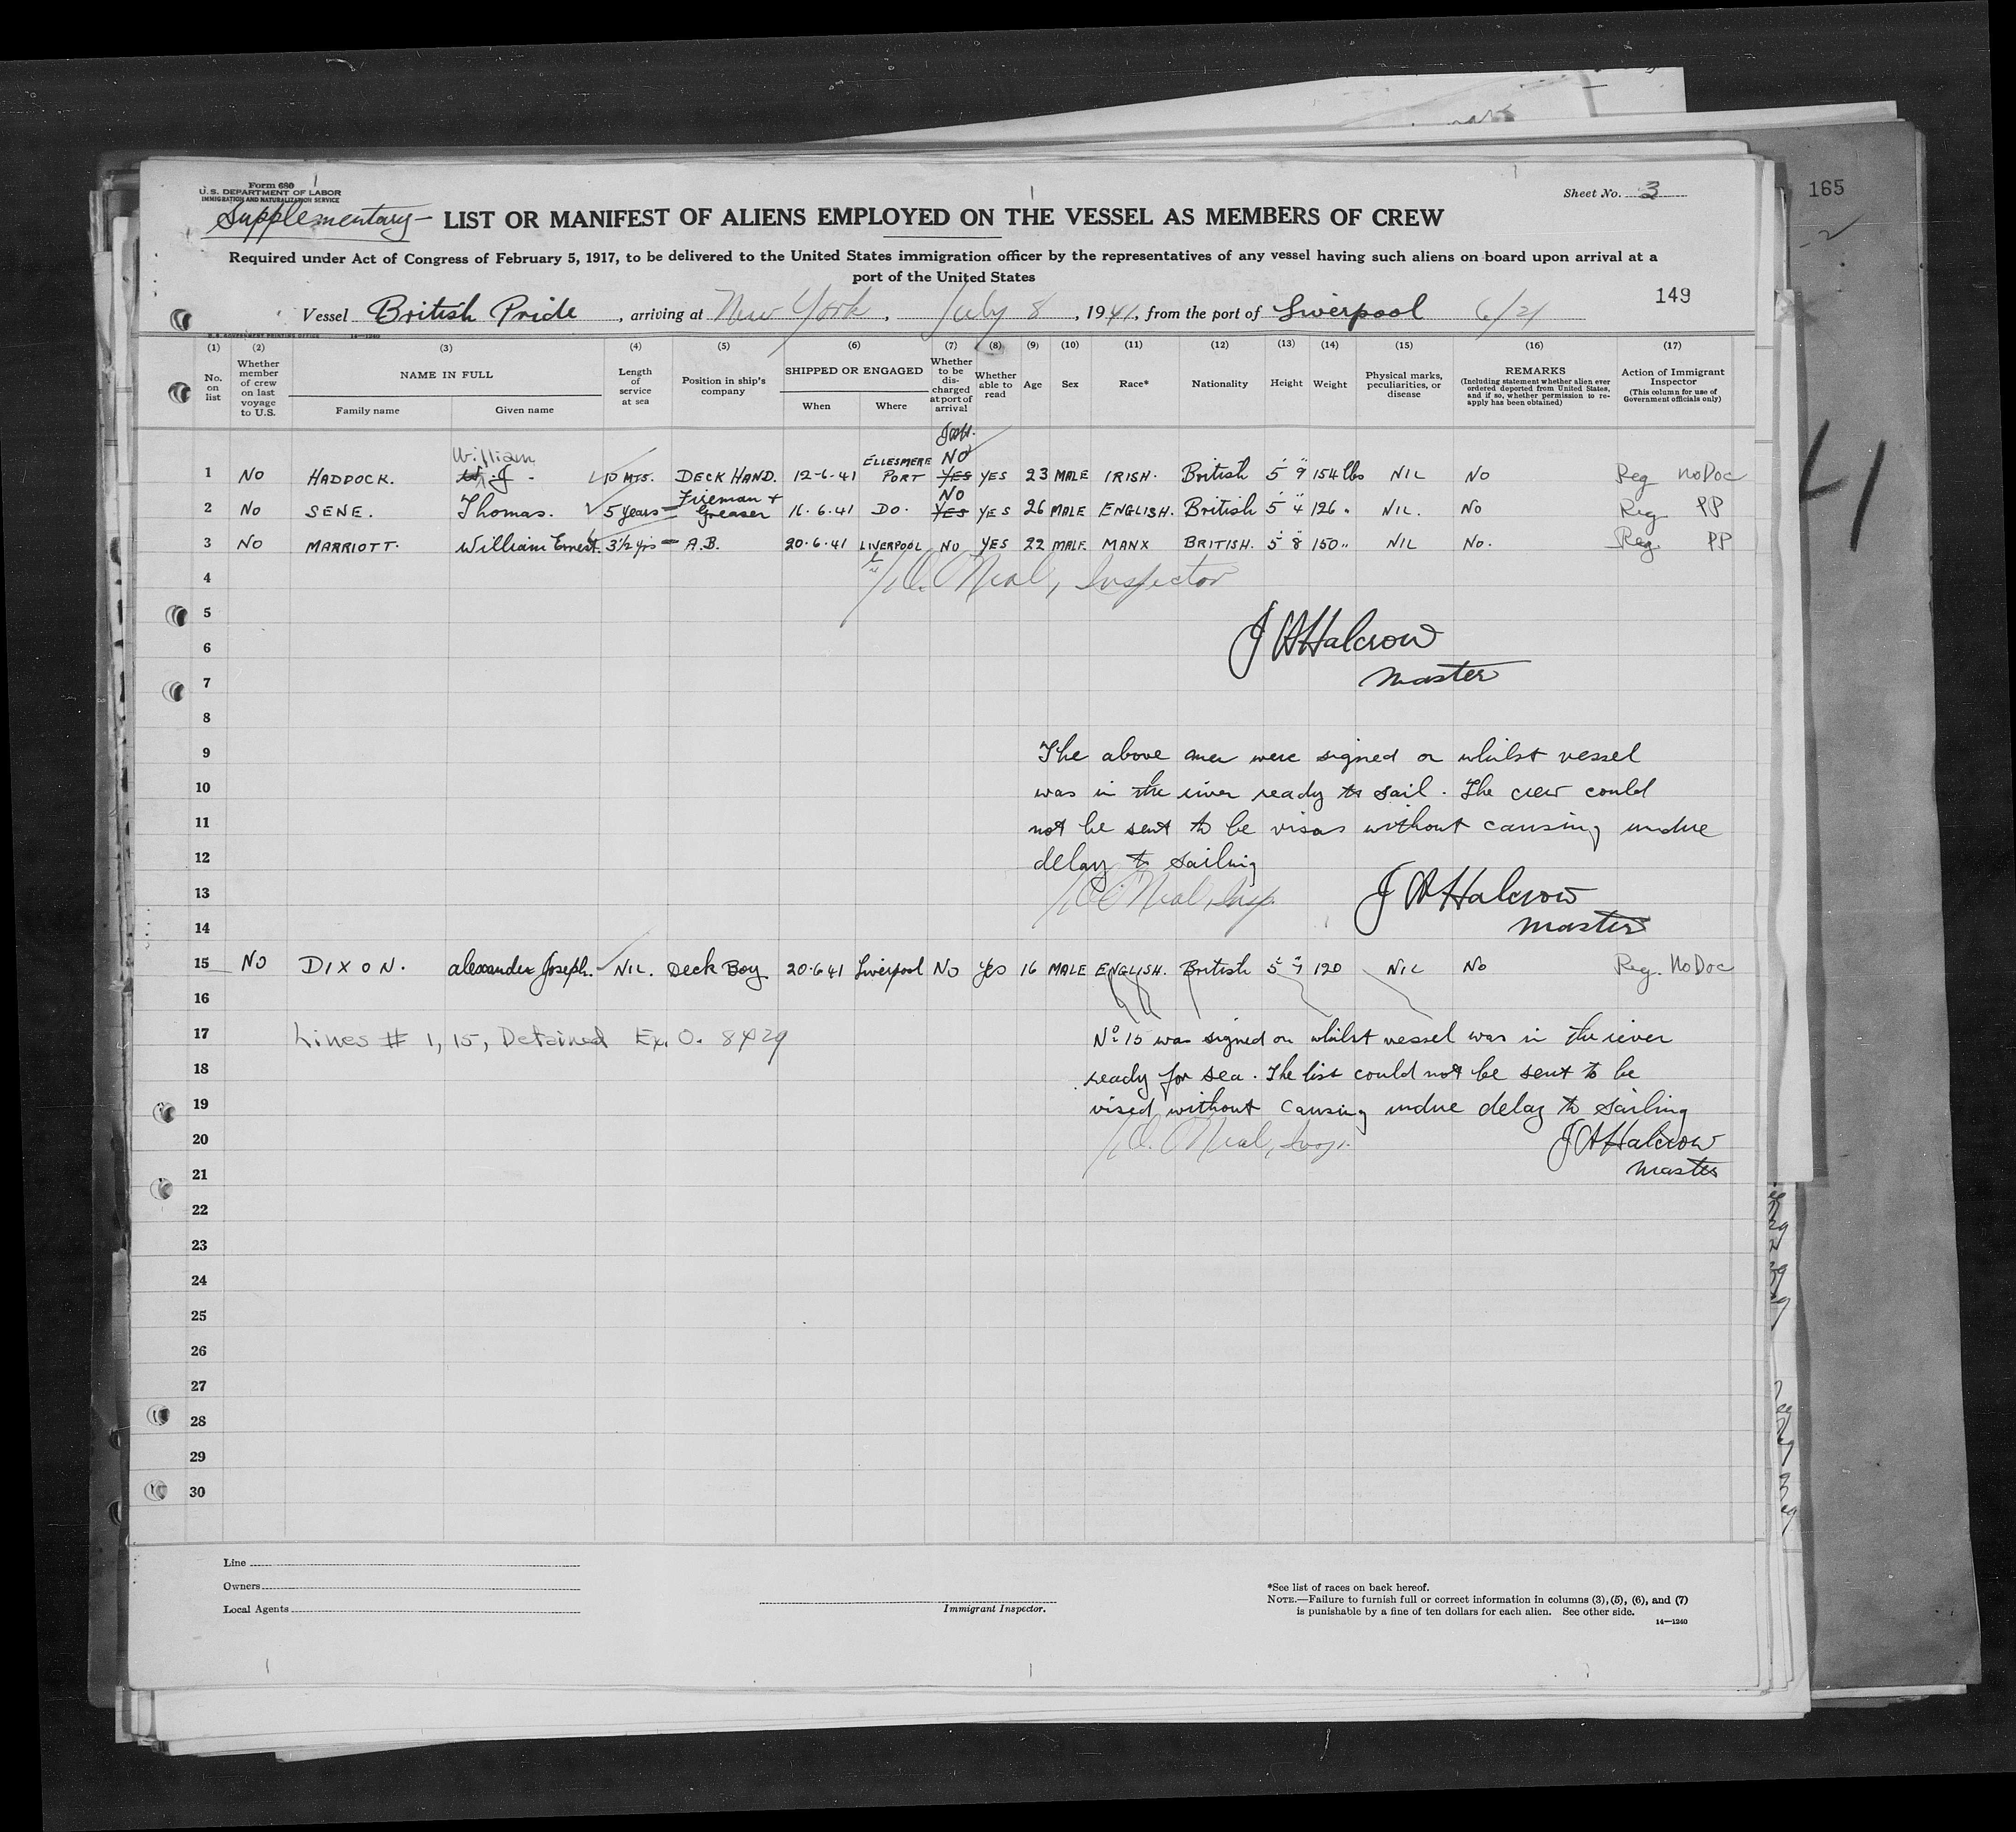 Form 680
U.S. DEPARTMENT OF LABOR
IMMIGRATION AND NATURALIZATION SERVICE
Sheet No. 3
165
Supplementary— LIST OR MANIFEST OF ALIENS EMPLOYED ON THE VESSEL AS MEMBERS OF CREW
Required under Act of Congress of February 5, 1917, to be delivered to the United States immigration officer by the representatives of any vessel having such aliens on board upon arrival at a
port of the United States
149
Vessel British Pride, arriving at New York, July 8, 1941, from the port of Liverpool 6/21
U.S. GOVERNMENT PRINTING OFFICE 14—1240
(1) (2) (3) (4) (5) (6) (7) (8) (9) (10) (11) (12) (13) (14) (15) (16) (17)
No. on list
Whether member of crew on last voyage to U.S.
NAME IN FULL
Family name Given name
Length of service at sea
Position in ship's company
SHIPPED OR ENGAGED
When Where
Whether to be discharged at port of arrival
Whether able to read
Age
Sex
Race*
Nationality
Height
Weight
Physical marks, peculiarities, or disease
REMARKS
(Including statement whether alien ever ordered deported from United States, and if so, whether permission to re-apply has been obtained)
Action of Immigrant Inspector
(This column for use of Government officials only)
1 NO HADDOCK. William W. J. 10 MTS. DECK HAND. 12-6-41 ELLESMERE PORT NO YES YES 23 MALE IRISH. British 5' 9" 154 lbs NIL NO Reg No Doc
2 NO SENE. Thomas. 5 years Fireman + Greaser 16.6.41 DO. NO YES YES 26 MALE ENGLISH. British 5' 4" 126 " NIL. NO Reg PP
3 NO MARRIOTT. William Ernest. 3½ yrs A.B. 20.6.41 LIVERPOOL NO YES 22 MALE MANX BRITISH. 5' 8" 150 " NIL NO. Reg PP
4 O'Neal, Inspector
5
6 J A Halcrow
7 Master
8
9 The above men were signed on whilst vessel
10 was in the river ready to sail. The crew could
11 not be sent to be visas without causing undue
12 delay to sailing
13 O'Neal, Insp. J A Halcrow
14 Master
15 NO DIXON. Alexander Joseph. NIL. Deck Boy 20.6.41 Liverpool NO Yes 16 MALE ENGLISH. British 5' 7" 120 NIL No Reg. No Doc
16
17 Lines # 1, 15, Detained Ex. O. 8429 Nº 15 was signed on whilst vessel was in the river
18 ready for sea. The list could not be sent to be
19 vised without causing undue delay to sailing
20 O'Neal, Insp. J A Halcrow
21 Master
22
23
24
25
26
27
28
29
30
Line
Owners
Local Agents
Immigrant Inspector.
*See list of races on back hereof.
NOTE.—Failure to furnish full or correct information in columns (3), (5), (6), and (7)
is punishable by a fine of ten dollars for each alien. See other side.
14—1240